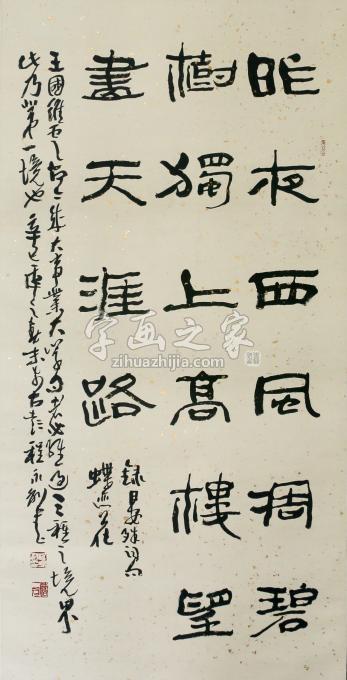 昨夜西風凋碧
樹獨上高樓望
盡天涯路
録自晏殊詞句
蝶恋花
王國維成大事業大學問者必經過三種之境界
此乃第一境也辛巳之春於古彭程永
字画之家
zihuazhijia.com